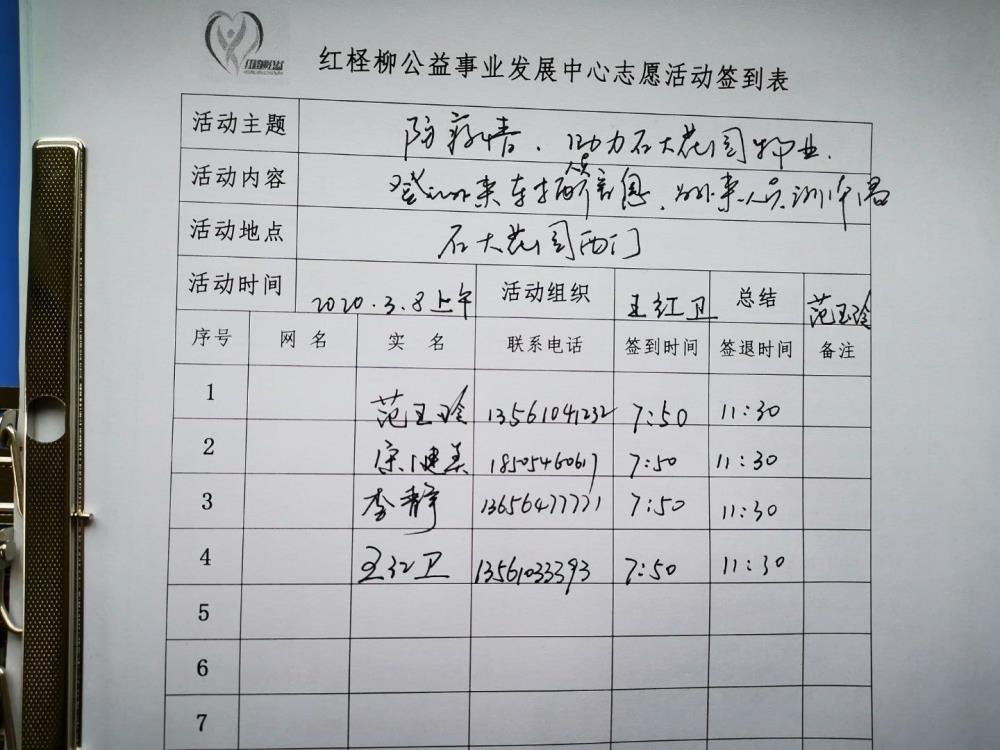 红柽柳公益
红柽柳公益事业发展中心志愿活动签到表
活动主题 防疫情、助力石大花园物业.
活动内容 登记外来车辆人员信息、为外来人员测体温
活动地点 石大花园西门
活动时间 2020.3.8上午 活动组织 王红卫 总结 范玉玲
序号 网名 实名 联系电话 签到时间 签退时间 备注
1 范玉玲 13561041232 7:50 11:30
2 宗健美 18505460617 7:50 11:30
3 李静 13656477721 7:50 11:30
4 王红卫 13561033393 7:50 11:30
5
6
7